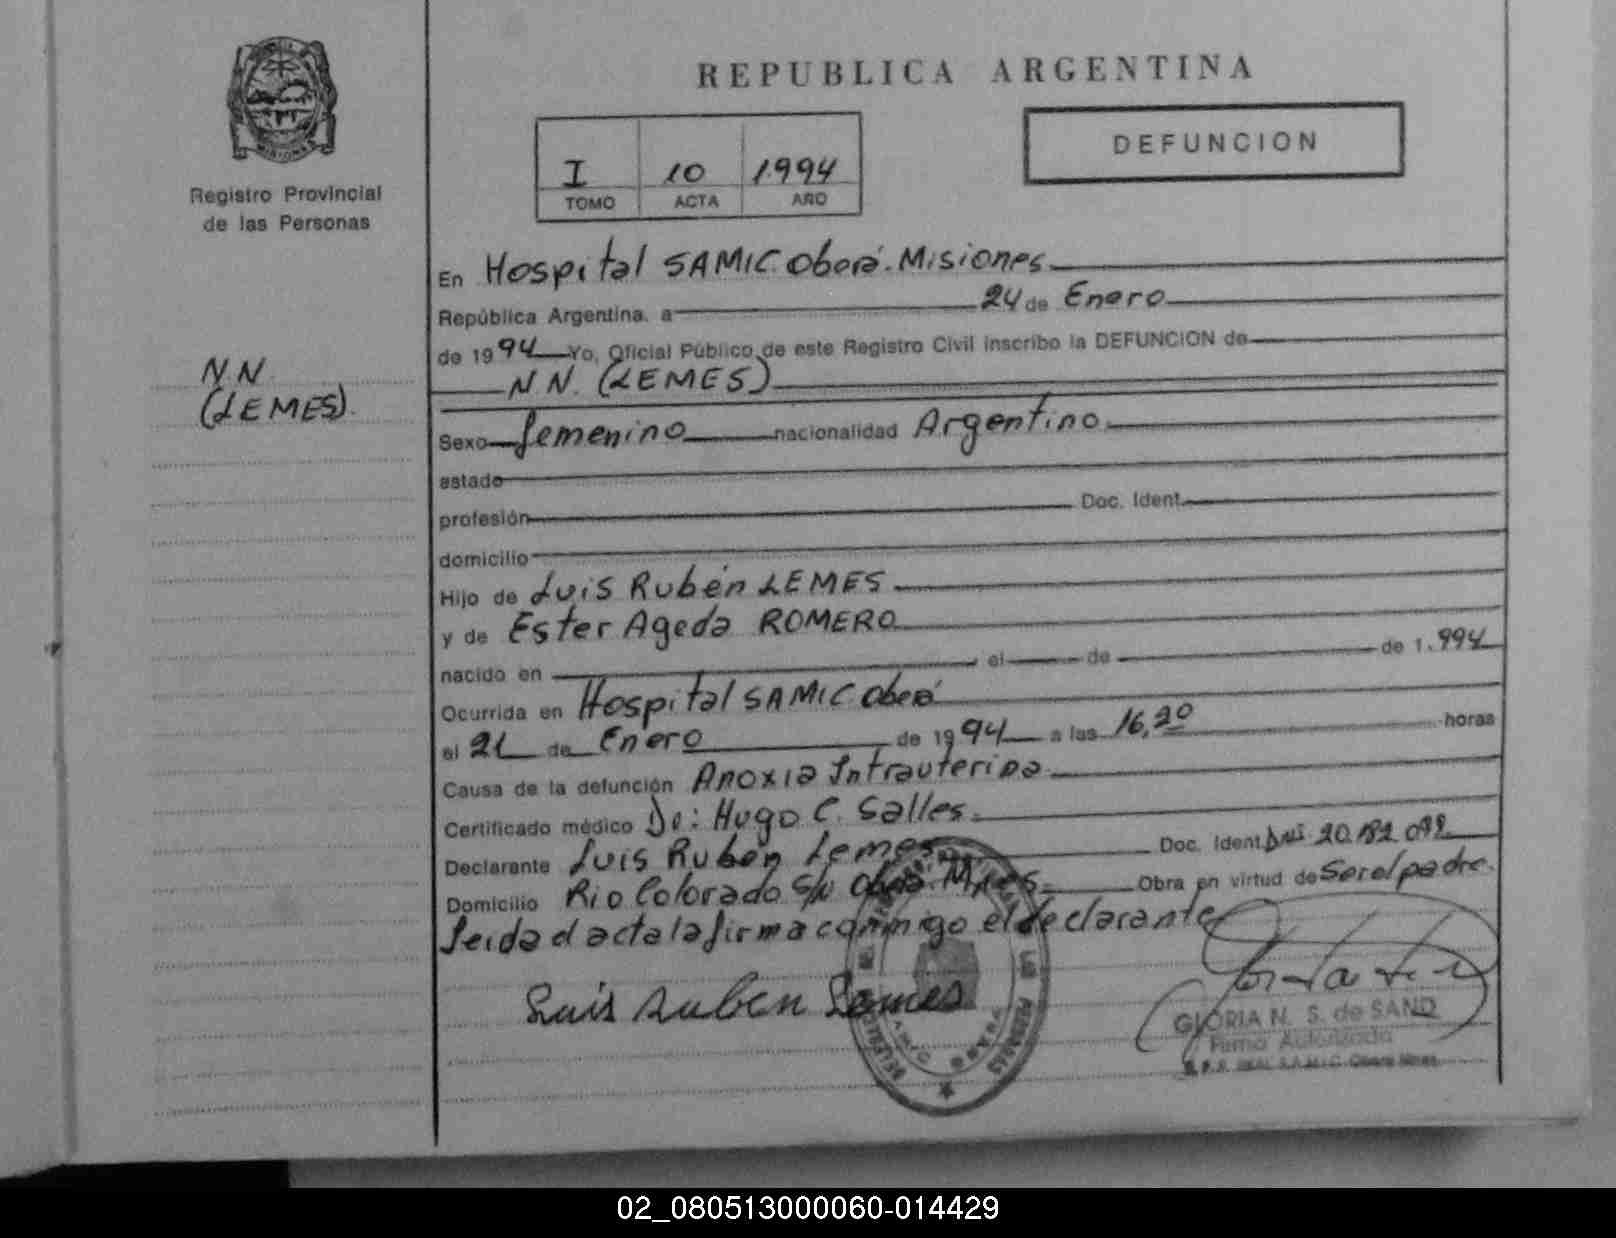 REPUBLICA ARGENTINA
MISIONES
Registro Provincial
de las Personas
I 10 1.994
TOMO ACTA AÑO
DEFUNCION
N N.
(LEMES).
En Hospital SAMIC. Oberá. Misiones.
República Argentina, a 24 de Enero
de 1994 Yo, Oficial Público de este Registro Civil inscribo la DEFUNCION de
N N. (LEMES)
Sexo femenino nacionalidad Argentino.
estado
profesión Doc. Ident.
domicilio
Hijo de Luis Rubén LEMES
y de Ester Ageda ROMERO
nacido en el de de 1.994
Ocurrida en Hospital SAMIC Oberá
el 21 de Enero de 1994 a las 16,20 horas
Causa de la defunción Anoxia Intrauterina.
Certificado médico Dr: Hugo C. Salles.
Declarante Luis Ruben Lemes Doc. Ident. DNI 20.182.098
Domicilio Rio Colorado S/N Oberá. Mnes. Obra en virtud de Ser el padre.
leida el acta la firma conmigo el declarante
Luis Ruben Lemes
GLORIA N. S. de SAND
Firma Autorizada
02_080513000060-014429